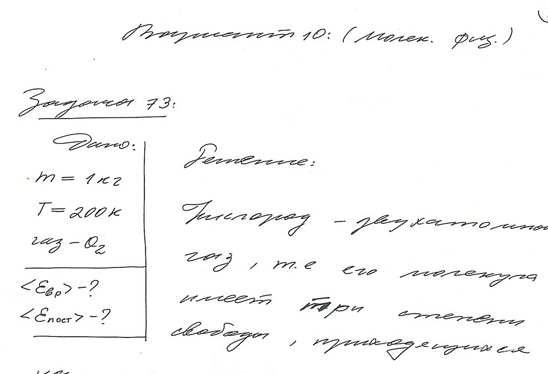 Вариант 10: (молек. физ.)
Задача 73:
Дано:
m = 1 кг
T = 200 К
газ - O₂
<Eвр> - ?
<Eпост> - ?
Решение:
Кислород - двухатомный
газ, т.е его молекула
имеет три степени
свободы, приходящихся